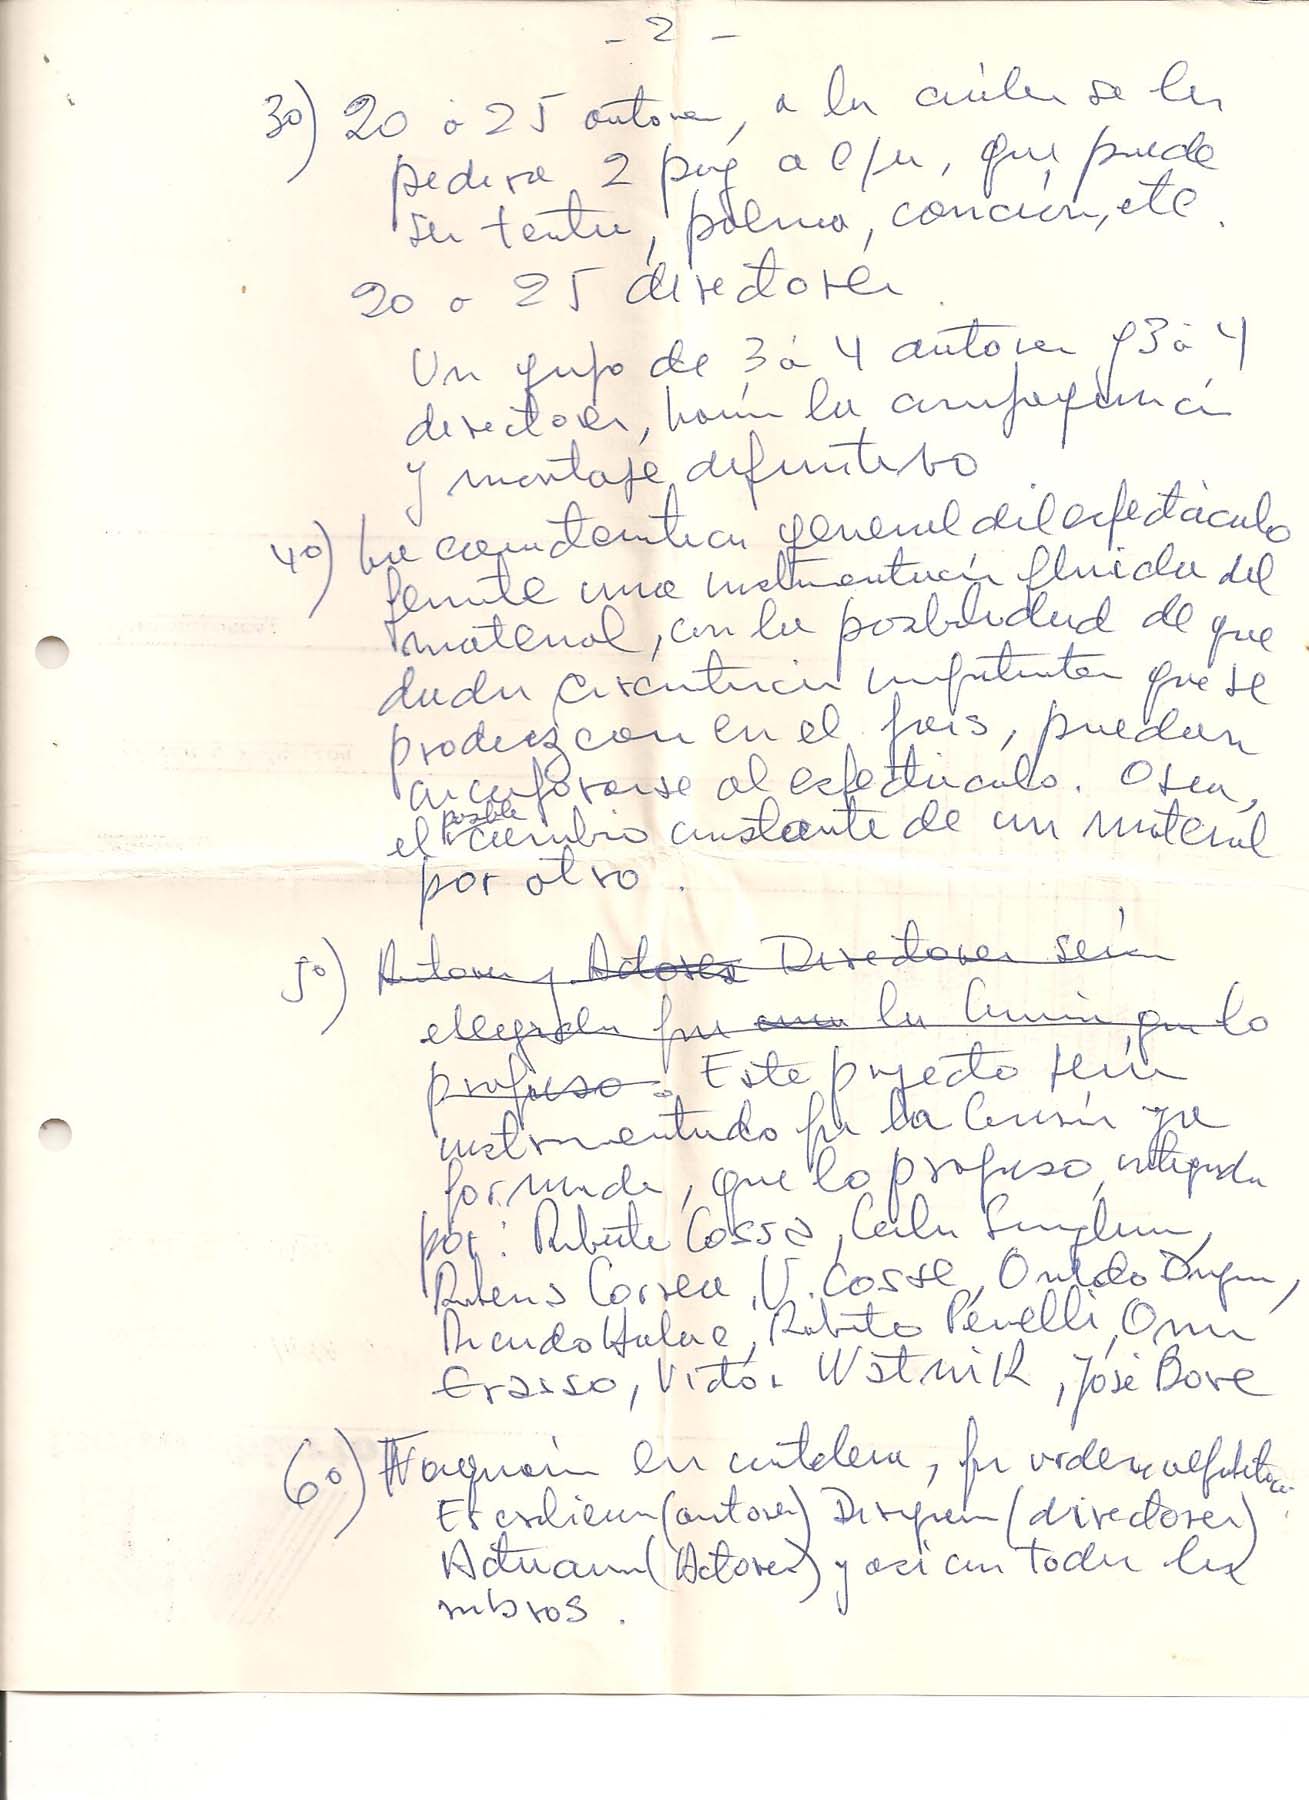 - 2 -
3o) 20 ó 25 autores, a los cuales se les
pedirá 2 pág a c/u, que puede
ser teatro, poema, canción, etc.
20 o 25 directores.
Un grupo de 3 ó 4 autores y 3 ó 4
directores, harán la compaginación
y montaje definitivo
4o) La característica general del espectáculo
permite una instrumentación fluida del
material, con la posibilidad de que
dadas circunstancias importantes que se
produzcan en el país, puedan
incorporarse al espectáculo. O sea,
el posible cambio constante de un material
por otro.
5o) Autores y Actores Directores serán
elegidos por una la Comisión que lo
propuso. Este proyecto será
instrumentado por la Comisión ya
formada, que lo propuso, integrada
por: Roberto Cossa, Carlos Somigliana,
Rubens Correa, V. Cosse, Osvaldo Dragún,
Ricardo Halac, Roberto Perinelli, Omar
Grasso, Víctor Watnik, José Bove
6o) Figurarán en cartelera, por orden alfabético.
Escribieron (autores) Dirigieron (directores)
Actuaron (Actores) y así con todos los
rubros.